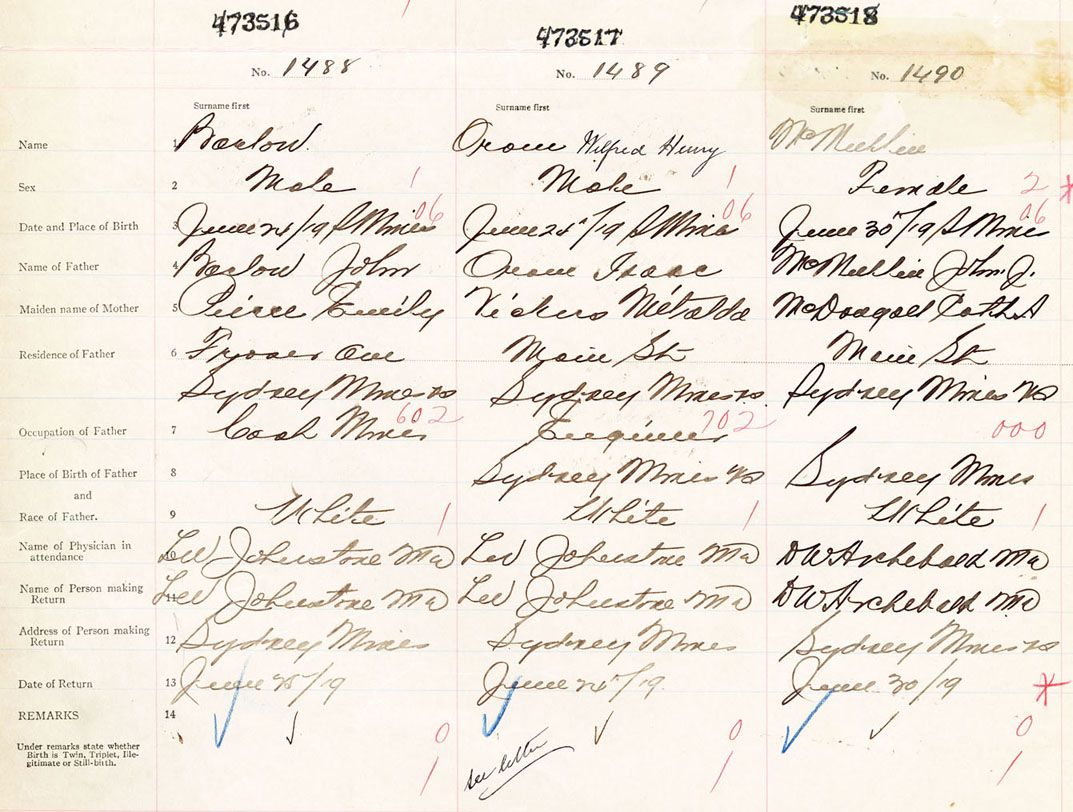 473516 473517 473518
No. 1488 No. 1489 No. 1490
Surname first Surname first Surname first
Name 1 Barlow. Oram Wilfred Henry McMullin
Sex 2 Male 1 Male 1 Female 2
06 06 06
Date and Place of Birth 3 June 24/19 S Mines June 24/19 S Mines June 30/19 S Mines
Name of Father 4 Barlow John Oram Isaac McMullin John J.
Maiden name of Mother 5 Emily Vickers McDougall Cath A
Residence of Father 6 Fraser Ave Main St Main St
Sydney Mines NS Sydney Mines NS Sydney Mines NS
602 702
Occupation of Father 7 Coal Miner Engineer 000
Place of Birth of Father 8 Sydney Mines NS Sydney Mines
and
Race of Father. 9 White 1 White 1 White 1
Name of Physician in
attendance 10 Johnstone MD Johnstone MD DW Archibald MD
Name of Person making
Return 11 Johnstone MD Johnstone MD DW Archibald MD
Address of Person making
Return 12 Sydney Mines Sydney Mines Sydney Mines NS
Date of Return 13 June 25/19 June 25/19. June 30/19
REMARKS 14
0 0 0
Under remarks state whether
Birth is Twin, Triplet, Ille-
gitimate or Still-birth.
see letter
1 1 1